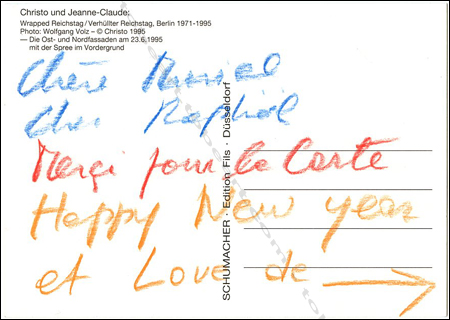 Christo und Jeanne-Claude:
Wrapped Reichstag / Verhüllter Reichstag, Berlin 1971-1995
Photo: Wolfgang Volz – © Christo 1995
— Die Ost- und Nordfassaden am 23.6.1995
mit der Spree im Vordergrund
Chère
Cher Raphaël
Merçi pour la Carte
Happy New year
et Love de
SCHUMACHER · Edition Fils · Düsseldorf